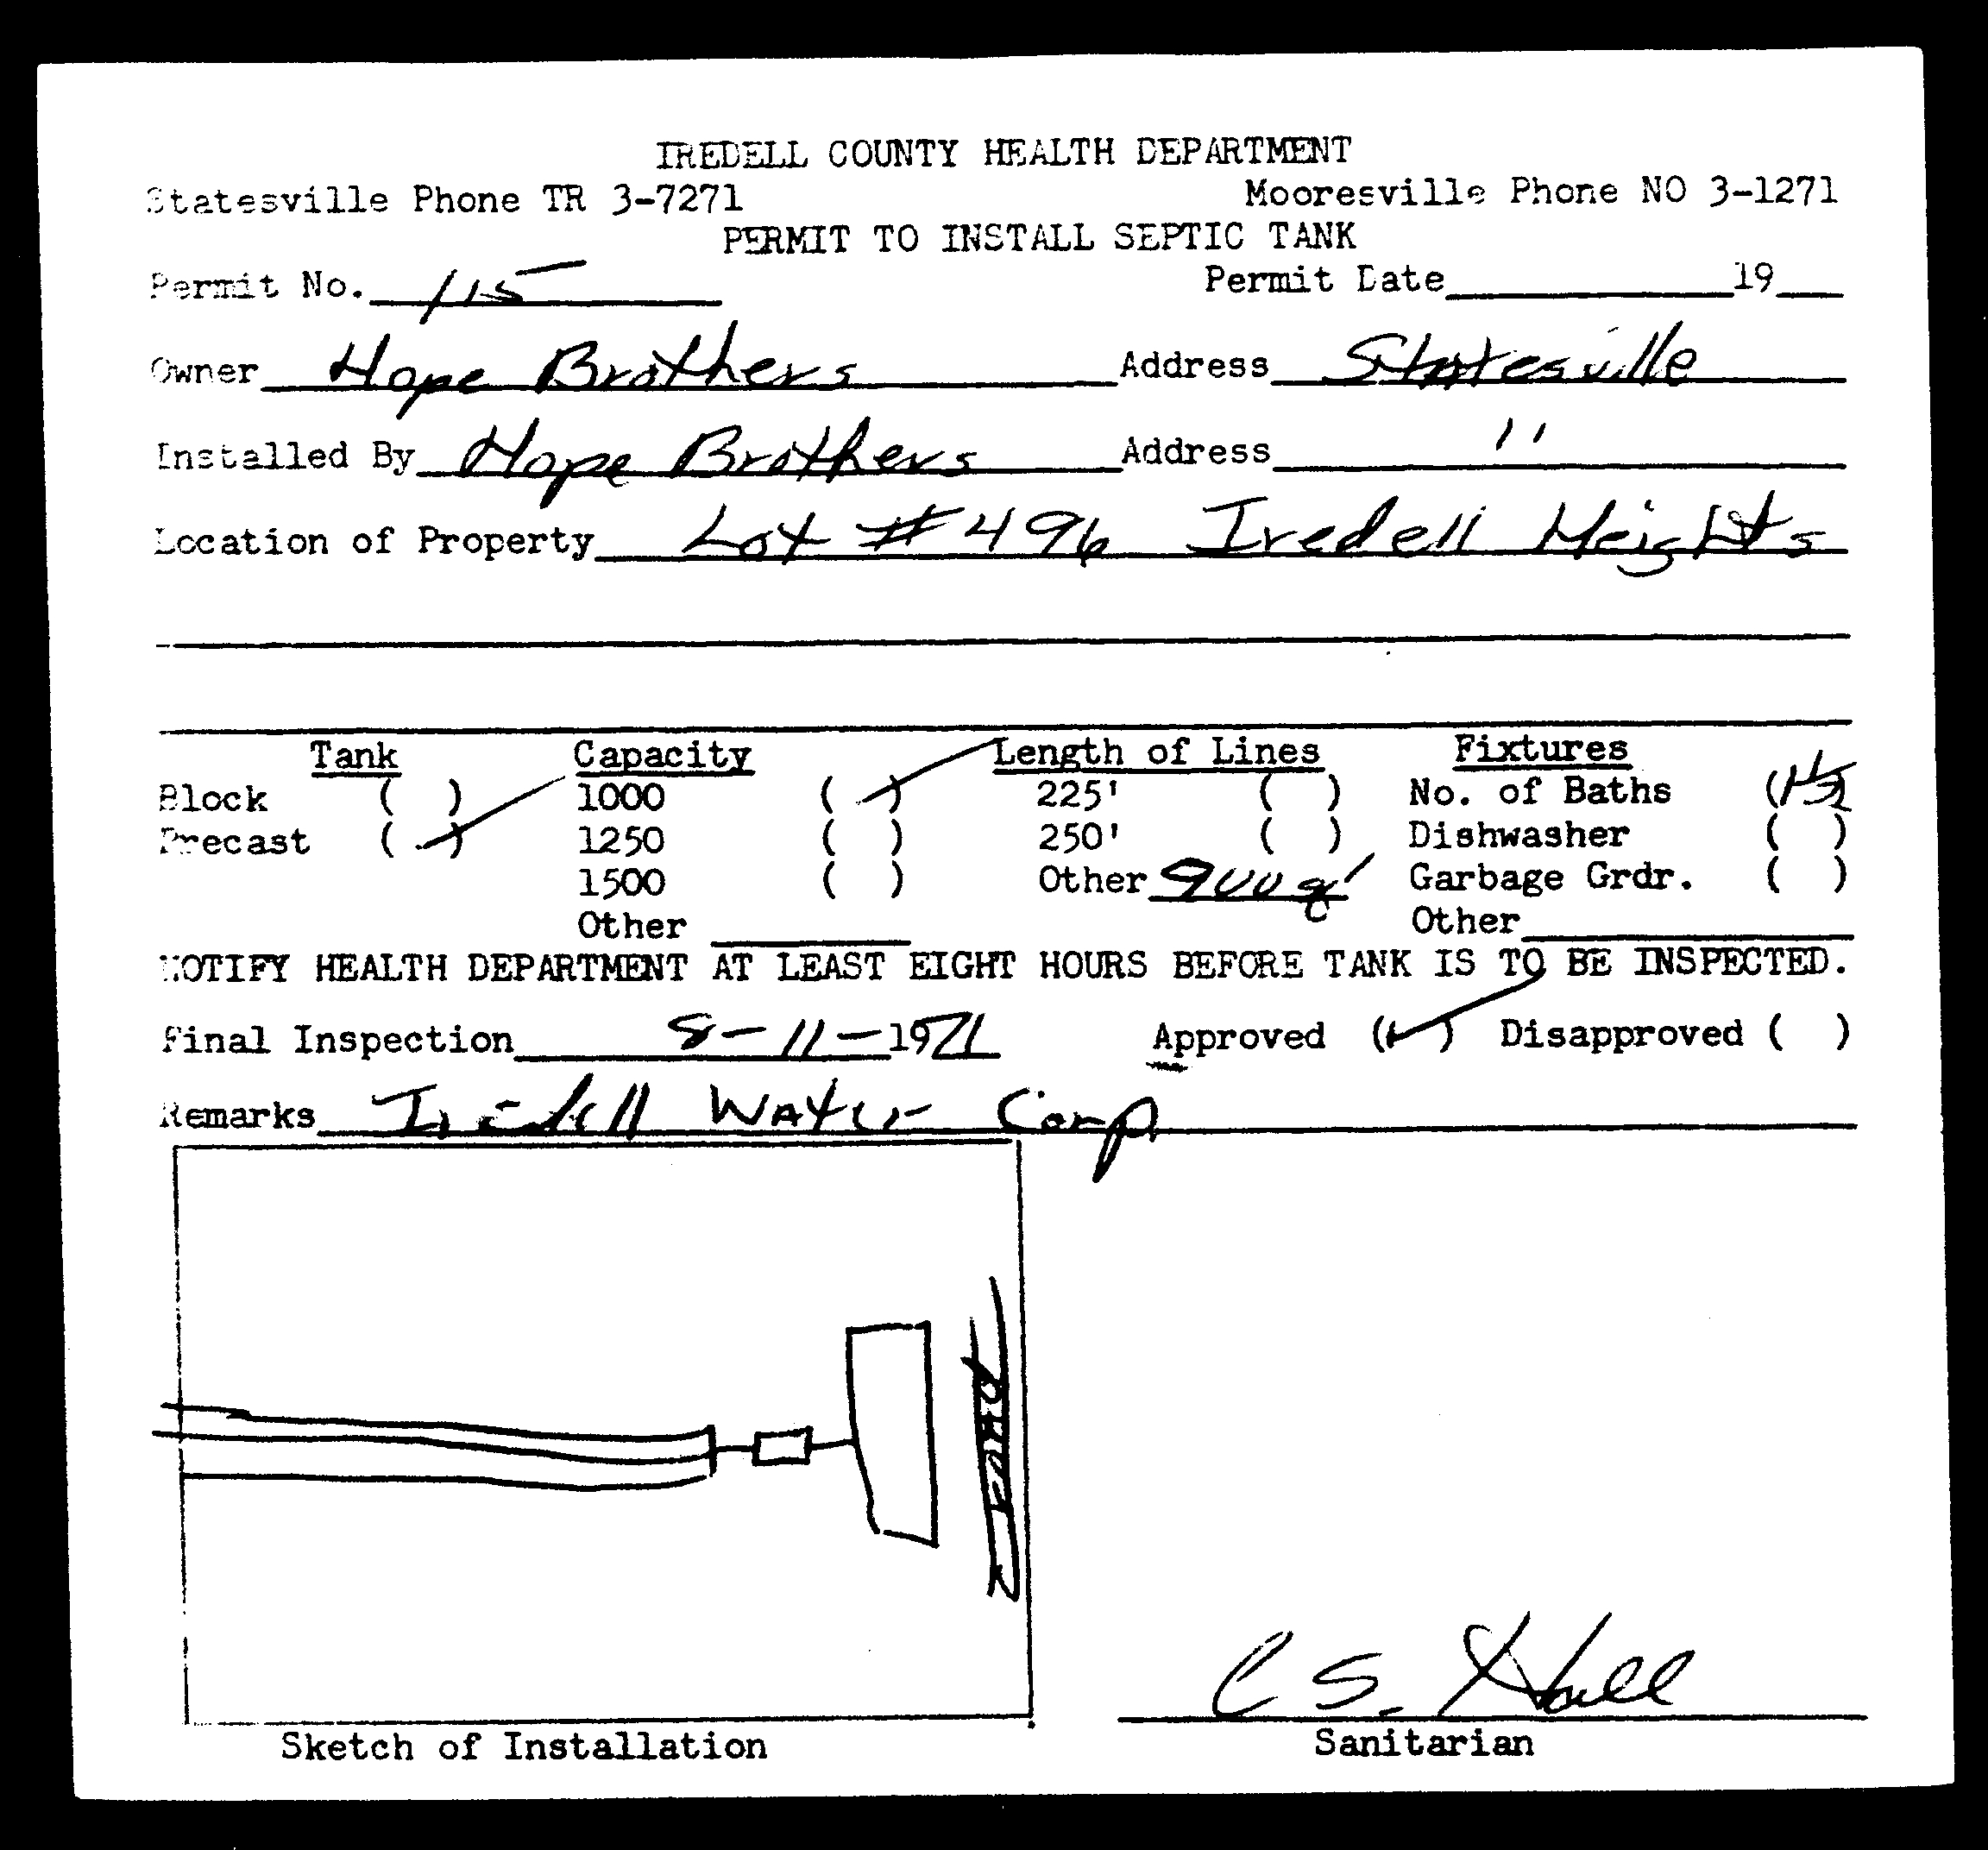 IREDELL COUNTY HEALTH DEPARTMENT
Statesville Phone TR 3-7271 Mooresville Phone NO 3-1271
PERMIT TO INSTALL SEPTIC TANK
Permit No. 115 Permit Date 19
Owner Hope Brothers Address Statesville
Installed By Hope Brothers Address "
Location of Property Lot #496 Iredell Heights
Tank Capacity Length of Lines Fixtures
Block ( ) 1000 (✓) 225' ( ) No. of Baths (1½)
Precast (✓) 1250 ( ) 250' ( ) Dishwasher ( )
1500 ( ) Other 900 Garbage Grdr. ( )
Other Other
NOTIFY HEALTH DEPARTMENT AT LEAST EIGHT HOURS BEFORE TANK IS TO BE INSPECTED.
Final Inspection 8-11-1971 Approved (✓) Disapproved ( )
Remarks Iredell Water Corp
Road
C S. Hall
Sketch of Installation Sanitarian